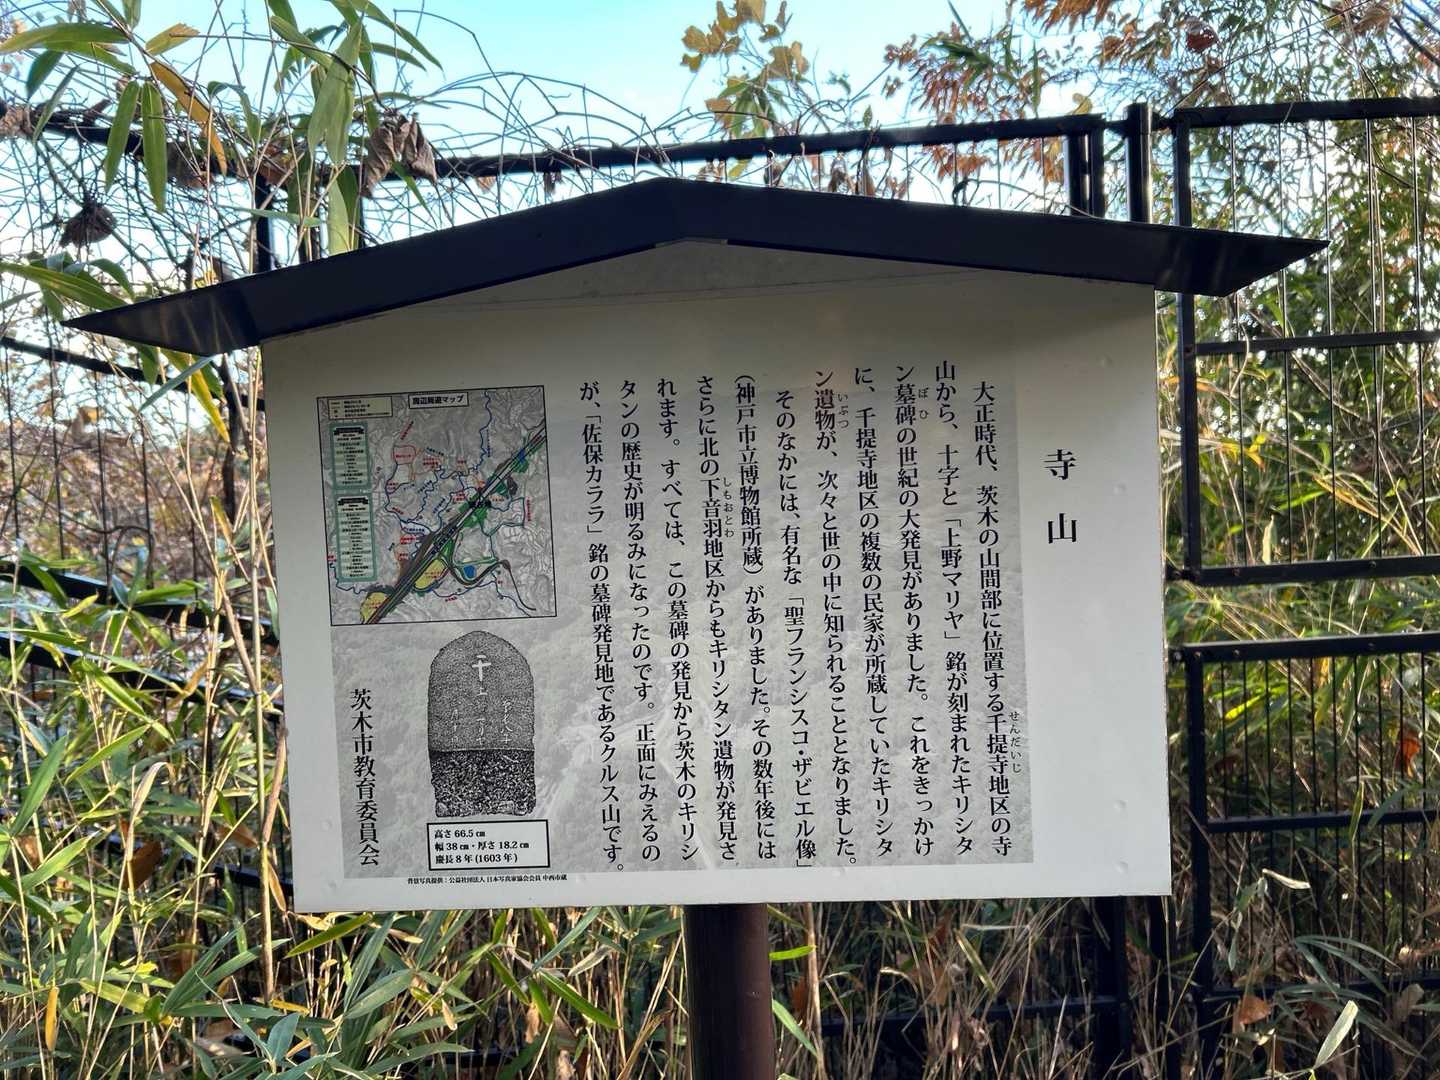 寺山
大正時代、茨木の山間部に位置する千提寺地区の寺
せんだいじ
山から、十字と「上野マリヤ」銘が刻まれたキリシタ
ン墓碑の世紀の大発見がありました。これをきっかけ
ぼひ
に、千提寺地区の複数の民家が所蔵していたキリシタ
ン遺物が、次々と世の中に知られることとなりました。
いぶつ
そのなかには、有名な「聖フランシスコ・ザビエル像」
（神戸市立博物館所蔵）がありました。その数年後には
さらに北の下音羽地区からもキリシタン遺物が発見さ
しもおとわ
れます。すべては、この墓碑の発見から茨木のキリシ
タンの歴史が明るみになったのです。正面にみえるの
が、「佐保カララ」銘の墓碑発見地であるクルス山です。
周辺周遊マップ
高さ 66.5 ㎝
幅 38 ㎝・厚さ 18.2 ㎝
慶長 8 年 (1603 年)
茨木市教育委員会
背景写真提供：公益社団法人 日本写真家協会会員 中西市蔵